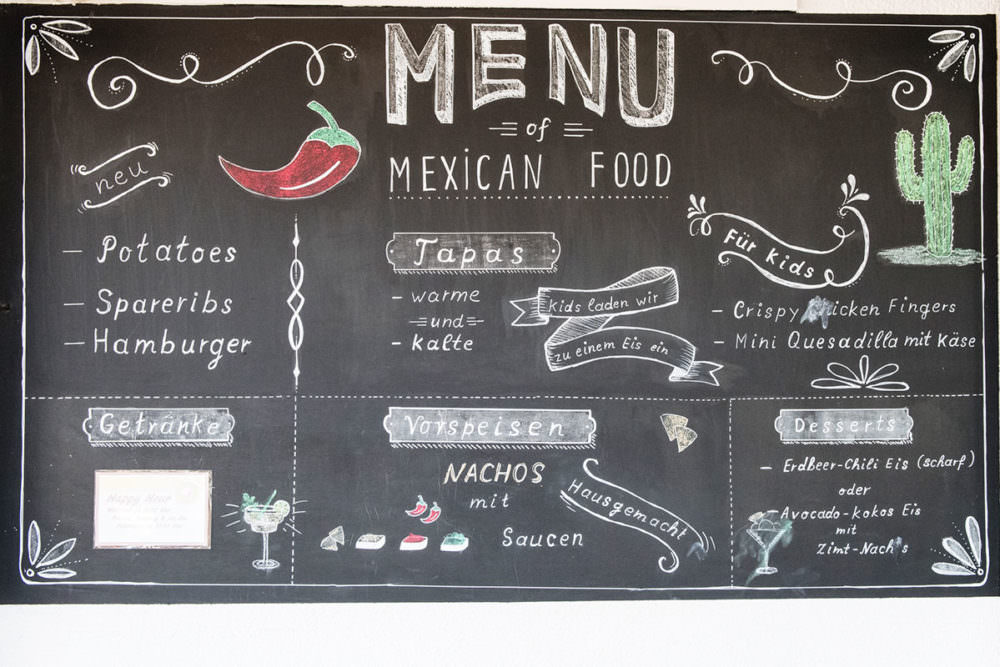 MENU
of
MEXICAN FOOD
neu
- Potatoes
- Spareribs
- Hamburger
Tapas
- warme
und
- kalte
Kids laden wir
zu einem Eis ein
Für Kids
- Crispy Chicken Fingers
- Mini Quesadilla mit Käse
Getränke
Happy Hour
Vorspeisen
NACHOS
mit
Saucen
Hausgemacht
Desserts
- Erdbeer-Chili Eis (scharf)
oder
- Avocado-kokos Eis
mit
Zimt-Nachos